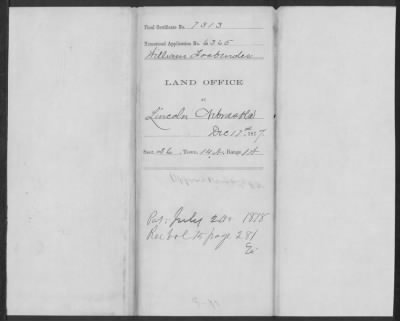 Final Certificate No. 7313
Homestead Application No. 6365
William
LAND OFFICE
at
Lincoln Nebraska
Dec 17th
Sect. 26, Town. 14 N, Range 1
Pat. July 20 1878
Rec Vol 15 page 281